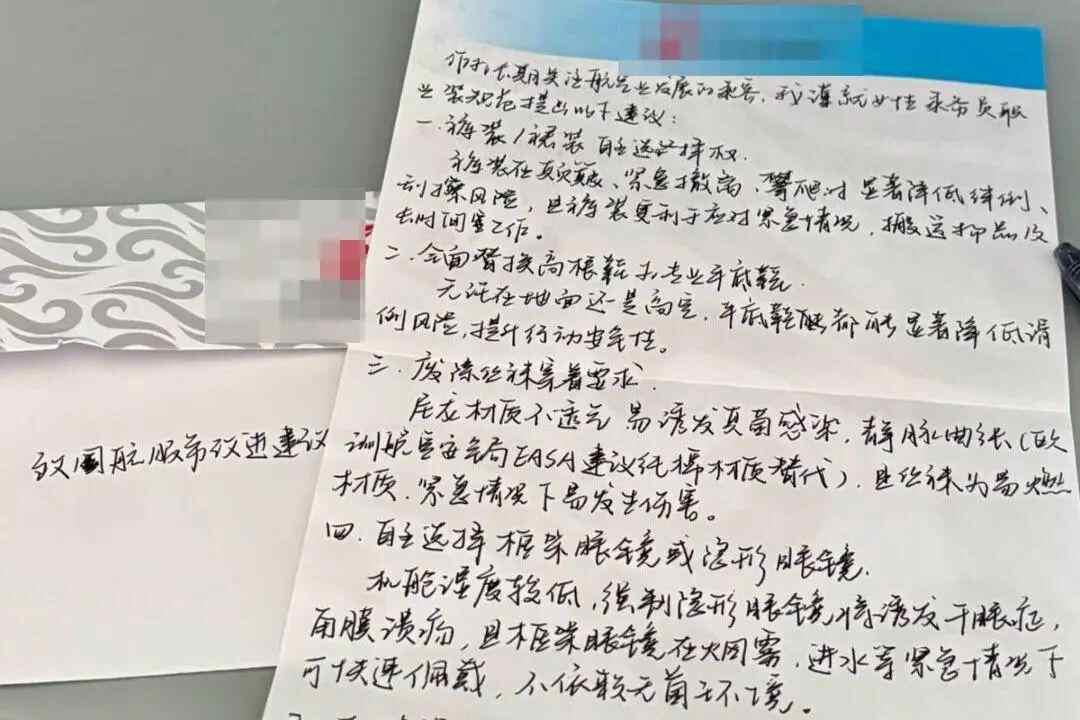 作为长期关注航空业发展的乘客，我谨就女性乘务员职
业装规范提出以下建议：
一.裤装/裙装自主选择权.
裤装在颠簸、紧急撤离、攀爬时显著降低绊倒、
刮擦风险，且裤装更利于应对紧急情况，搬运物品及
长时间客舱工作。
二.全面替换高根鞋为专业平底鞋.
无论在地面还是高空，平底鞋都能显著降低滑
倒风险,提升行动安全性。
三.废除丝袜穿着要求.
尼龙材质不透气易诱发真菌感染，静脉曲张(欧
洲航空安全局EASA建议纯棉材质替代)，且丝袜为易燃
材质.紧急情况下易发生伤害。
四.自主选择框架眼镜或隐形眼镜.
机舱湿度较低，强制隐形眼镜将诱发干眼症，
角膜溃疡，且框架眼镜在烟雾，进水等紧急情况下
可快速佩戴，不依赖无菌环境。
致国航服饰改进建议